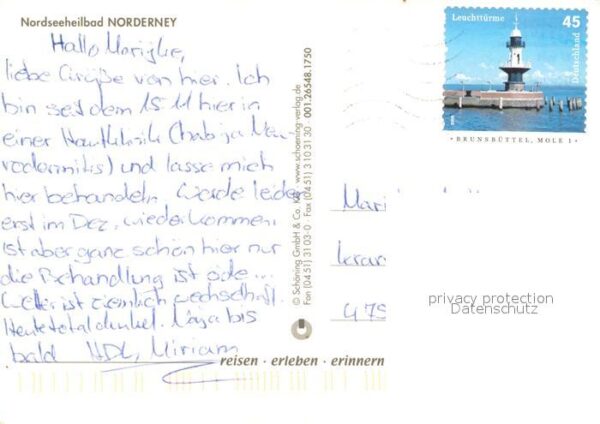 Nordseeheilbad NORDERNEY
Hallo Marijke,
liebe Grüße von hier. Ich
bin seit dem 15.11 hier in
einer Hautklinik (hab ja Neu-
rodermitis) und lasse mich
hier behandeln. Werde leider
erst im Dez. wiederkommen.
Ist aber ganz schön hier nur
die Behandlung ist öde...
Wetter ist ziemlich wechselhaft.
Heute total dunkel. Naja bis
bald HDL, Miriam
© Schöning GmbH & Co. KG · www.schoening-verlag.de
Fon (04 51) 3 10 3-0 · Fax (04 51) 3 10 31 30 001.26548.1750
reisen · erleben · erinnern
Leuchttürme 45
Deutschland
BRUNSBÜTTEL, MOLE 1
Mari
479
privacy protection
Datenschutz